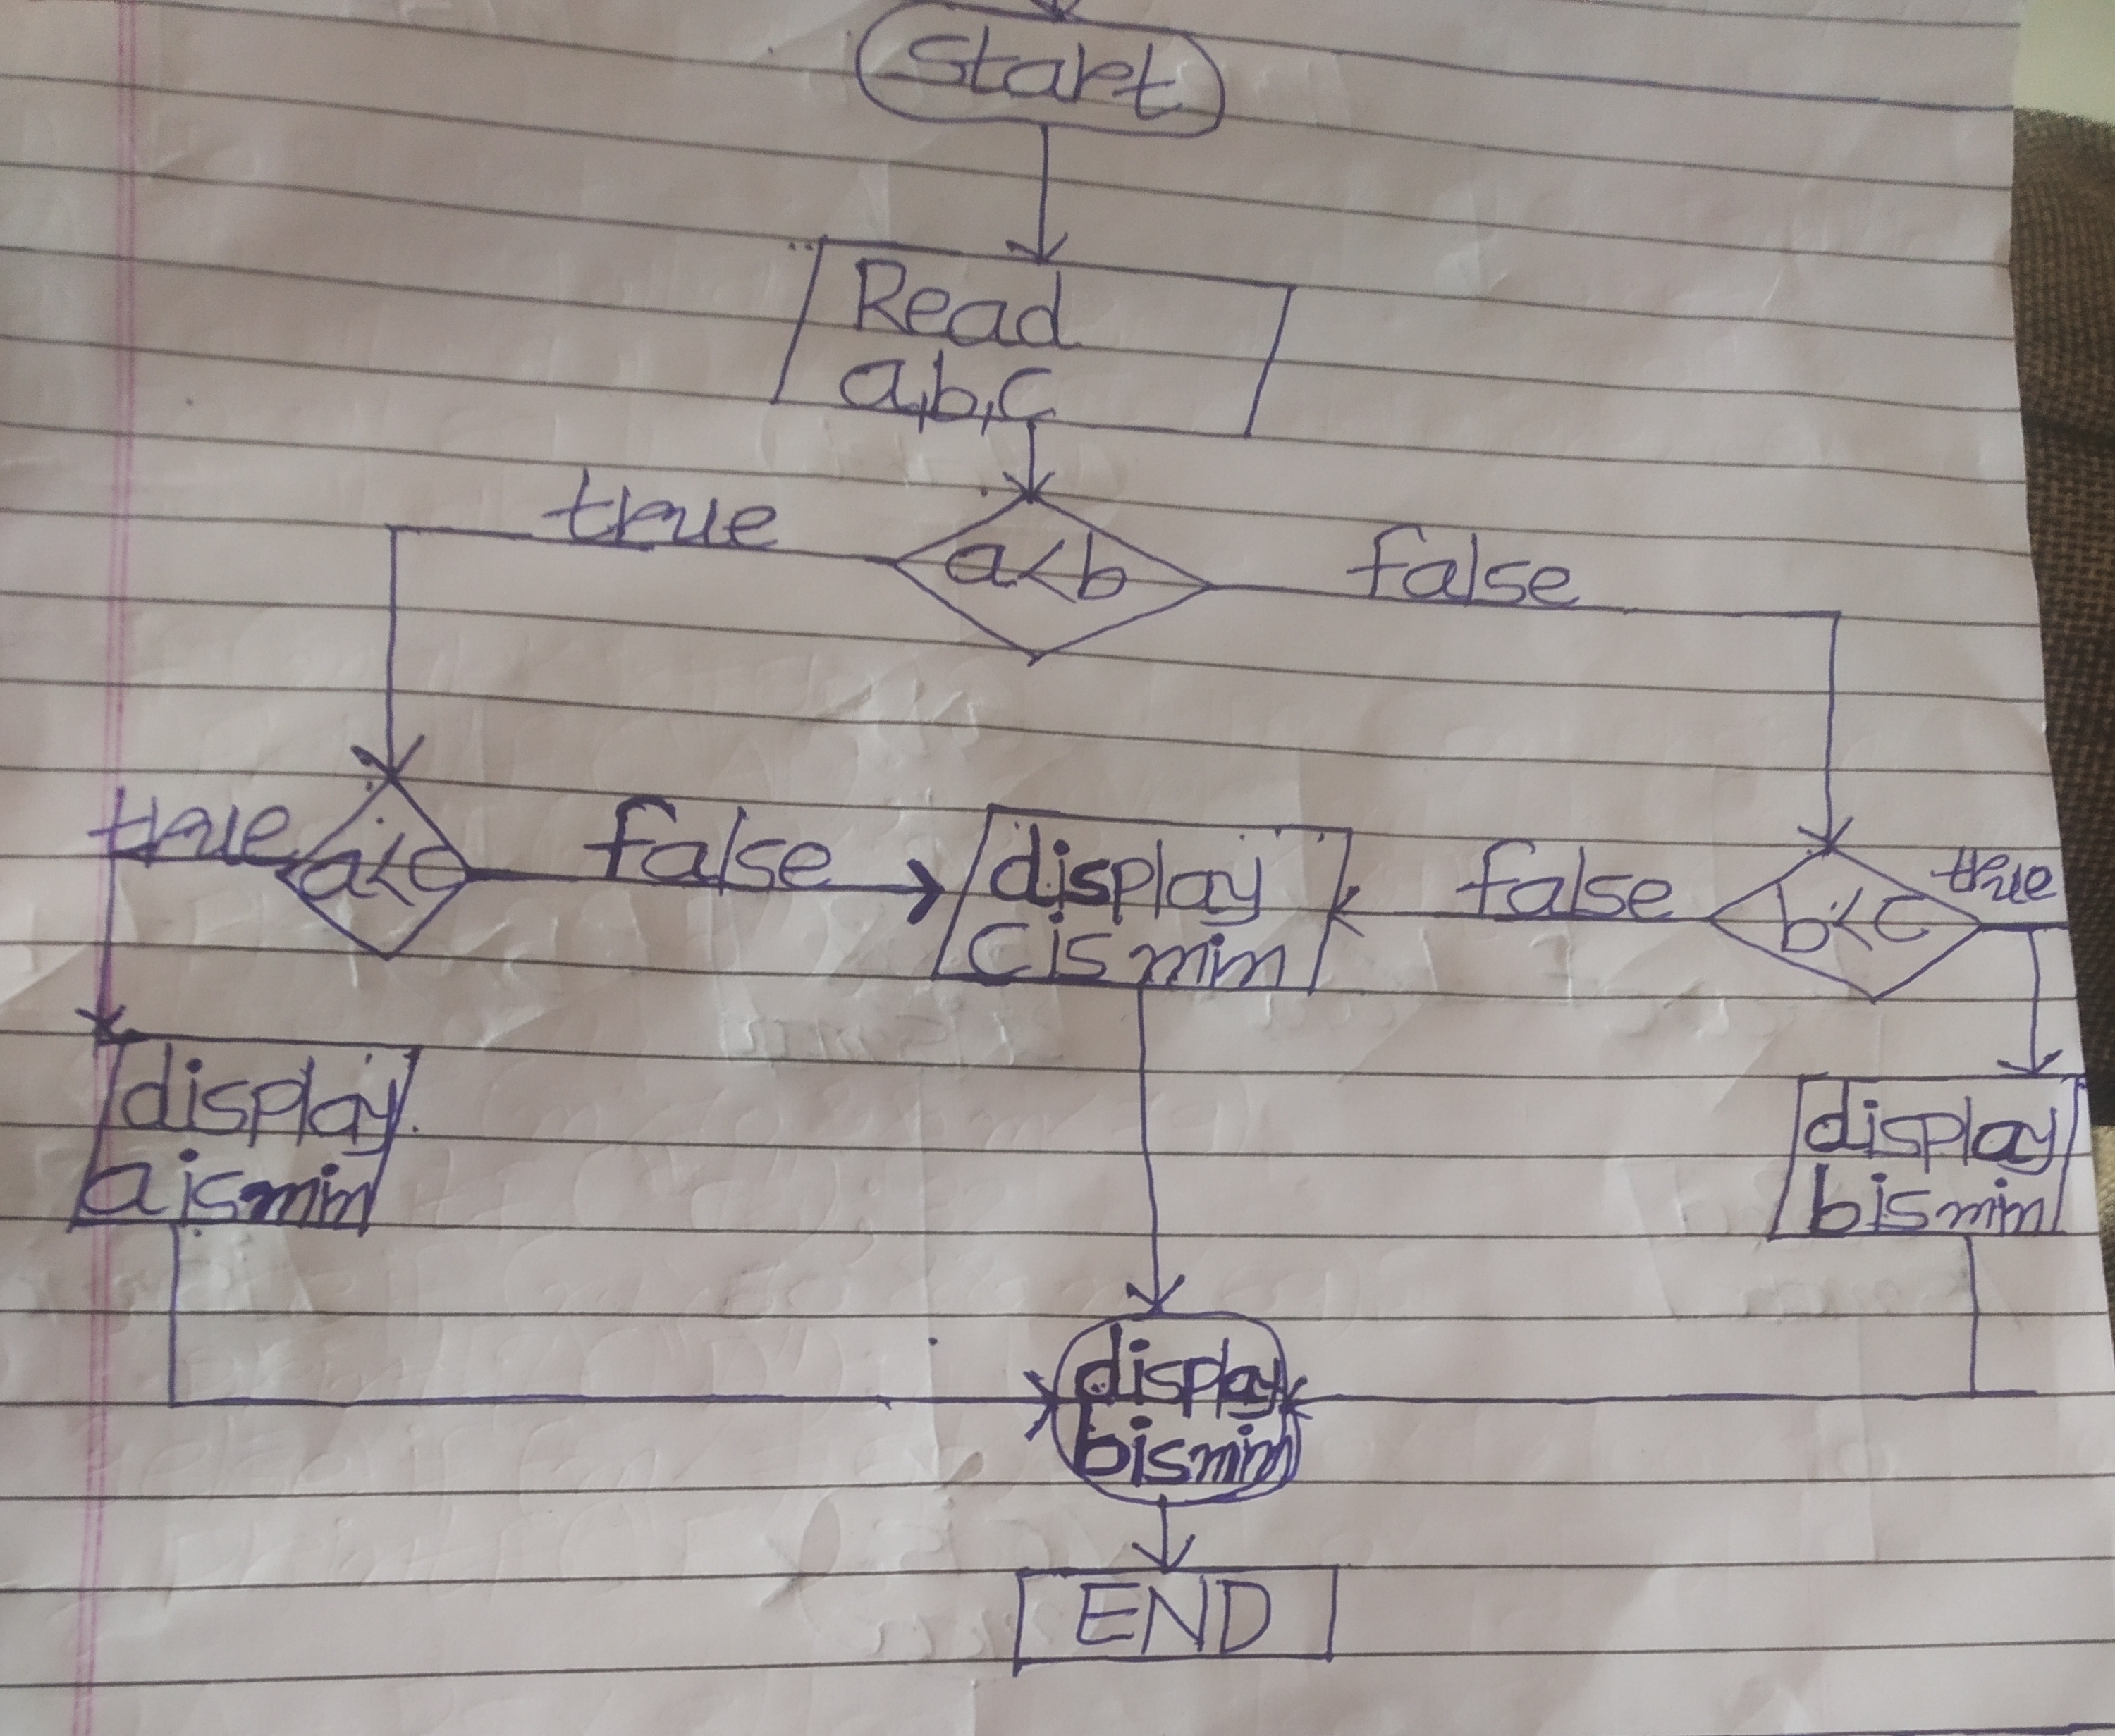 Start
Read
a,b,c
true
a<b
false
true
a<c
false
display
c is min
false
b<c
true
display
a is min
display
b is min
display
b is min
END